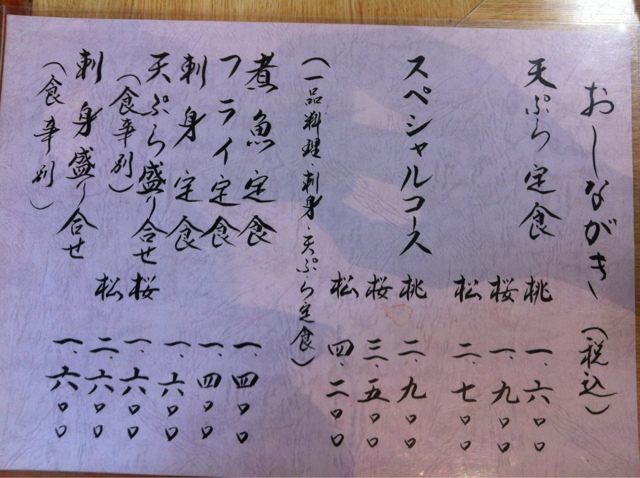 おしながき（税込）
天ぷら定食 桃 一、六〇〇
桜 一、九〇〇
松 二、七〇〇
スペシャルコース 桃 二、九〇〇
桜 三、五〇〇
松 四、二〇〇
（一品料理、刺身、天ぷら定食）
煮魚定食 一、四〇〇
フライ定食 一、四〇〇
刺身定食 一、六〇〇
天ぷら盛り合せ 桜 一、六〇〇
（食事別） 松 二、六〇〇
刺身盛り合せ 一、六〇〇
（食事別）